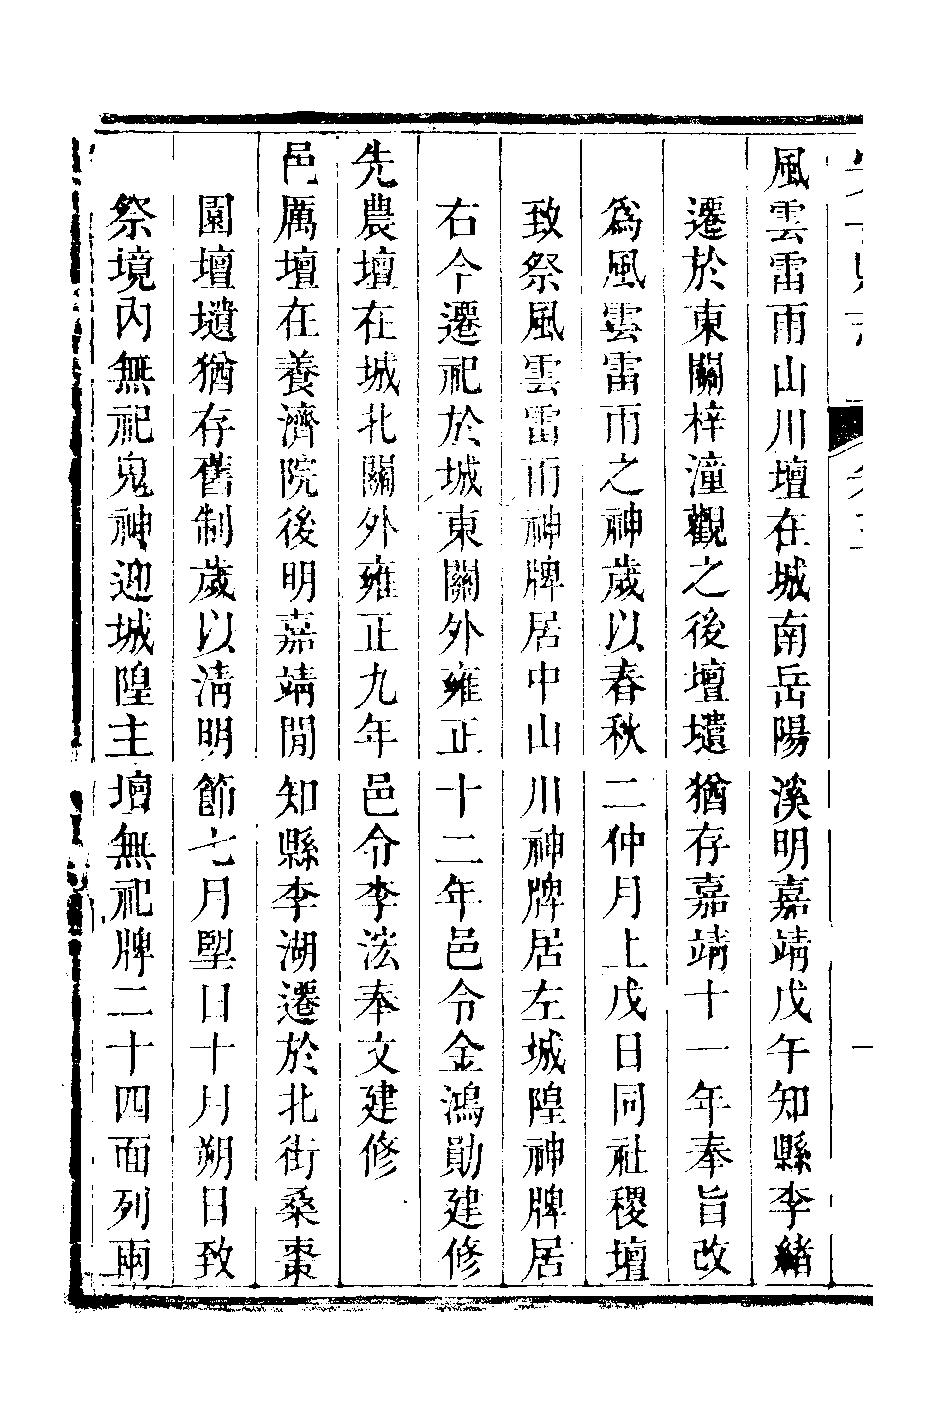 風雲雷雨山川壇在城南岳陽溪明嘉靖戊午知縣李緒
遷於東關梓潼觀之後壇壝猶存嘉靖十一年奉旨改
爲風雲雷雨之神歲以春秋二仲月上戊日同社稷壇
致祭風雲雷雨神牌居中山川神牌居左城隍神牌居
右今遷祀於城東關外雍正十二年邑令金鴻勛建修
先農壇在城北關外雍正九年邑令李浤奉文建修
邑厲壇在養濟院後明嘉靖閒知縣李湖遷於北街桑棗
園壇壝猶存舊制歲以淸明節七月朢日十月朔日致
祭境內無祀鬼神迎城隍主壇無祀牌二十四面列兩